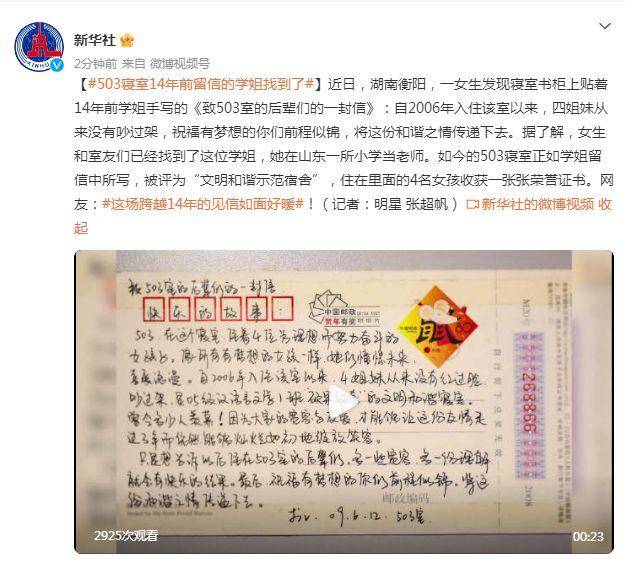 新华社
2分钟前 来自 微博视频号
【#503寝室14年前留信的学姐找到了#】近日，湖南衡阳，一女生发现寝室书柜上贴着
14年前学姐手写的《致503室的后辈们的一封信》：自2006年入住该室以来，四姐妹从
来没有吵过架，祝福有梦想的你们前程似锦，将这份和谐之情传递下去。据了解，女生
和室友们已经找到了这位学姐，她在山东一所小学当老师。如今的503寝室正如学姐留
信中所写，被评为“文明和谐示范宿舍”，住在里面的4名女孩收获一张张荣誉证书。网
友：#这场跨越14年的见信如面好暖#！（记者：明星 张超帆） 新华社的微博视频 收
起
致503室的后辈们的一封信
快乐的故事：
中国邮政
贺年有奖
503，在这个寝室住着4位为理想而努力奋斗的
女孩儿。与所有有梦想的女孩一样，她们憧憬未来，
喜爱浪漫。自2006年入住该室以来，4姐妹从来没有红过脸，
吵过架。
多少人羡慕！因为大家的宽容与友爱，才能够让这份友情走
过3年而依然能够灿烂如初地绽放笑容。
P.S.想告诉以后住在503室的后辈们，多一些宽容，多一份理解
就会有快乐的结果。最后，祝福有梦想的你们前程似锦，将这
份和谐之情传递下去。
邮政编码
09.6.12. 503室
268866
2008
2925次观看
00:23